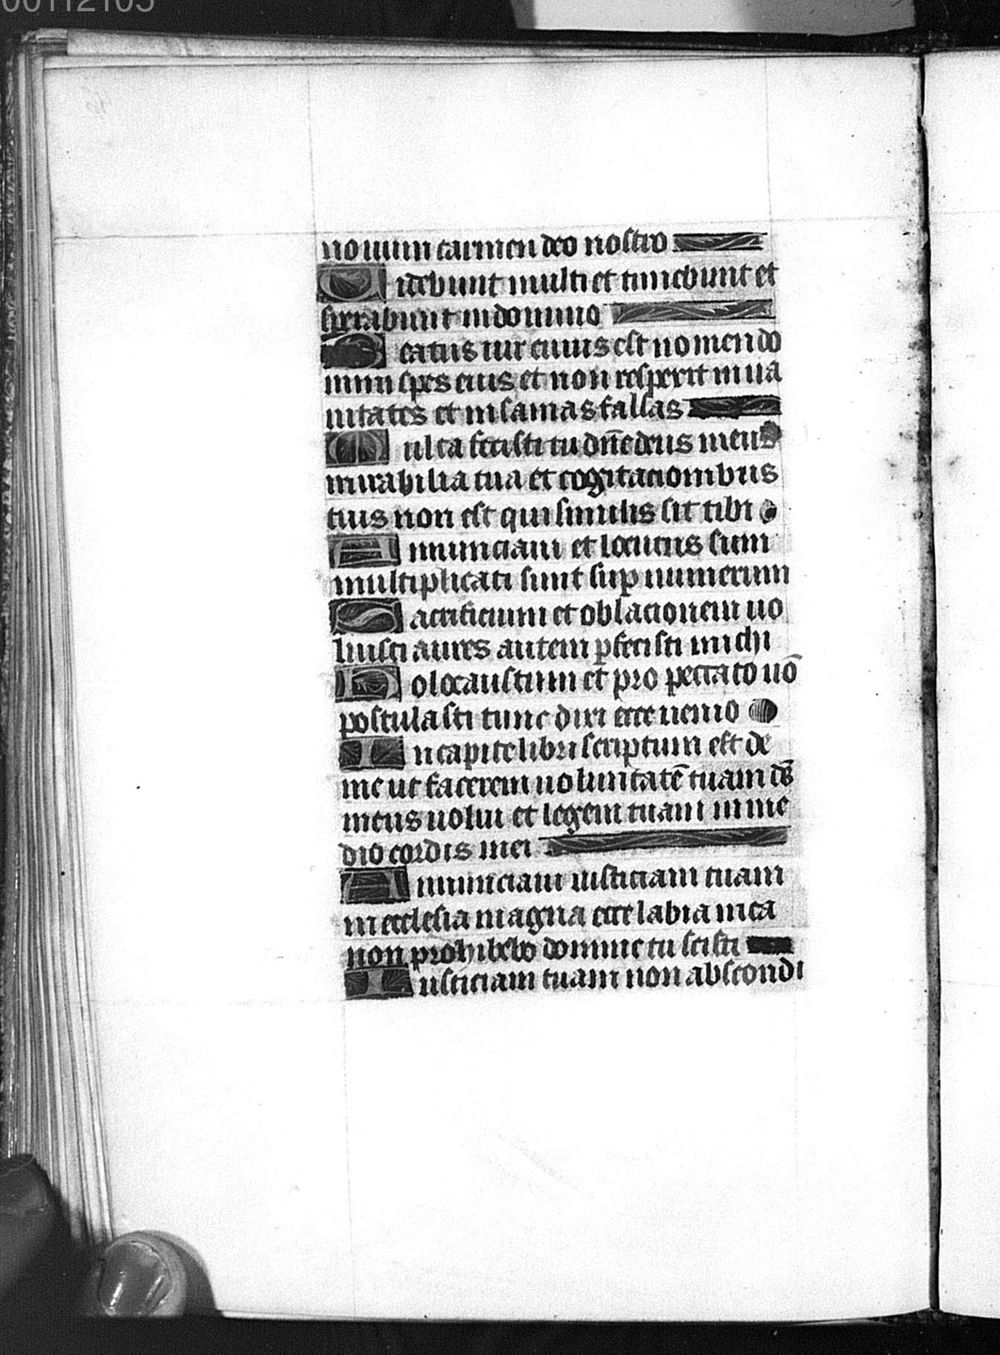 00112105
nouum carmen deo nostro
Uidebunt multi et timebunt et
sperabunt in domino
Beatus uir cuius est nomen do
mini spes eius et non respexit in ua
nitates et insanias falsas
Multa fecisti tu dñe deus meus
mirabilia tua et cogitacionibus
tuis non est qui similis sit tibi
Annunciaui et locutus sum
multiplicati sunt sup numerum
Sacrificium et oblacionem uo
luisti aures autem pfecisti michi
Holocaustum et pro peccato nõ
postulasti tunc dixi ecce uenio
In capite libri scriptum est de
me ut facerem uoluntatẽ tuam ds̃
meus uolui et legem tuam in me
dio cordis mei
Annunciaui iusticiam tuam
in ecclesia magna ecce labia mea
non prohibebo domine tu scisti
Iusticiam tuam non abscondi